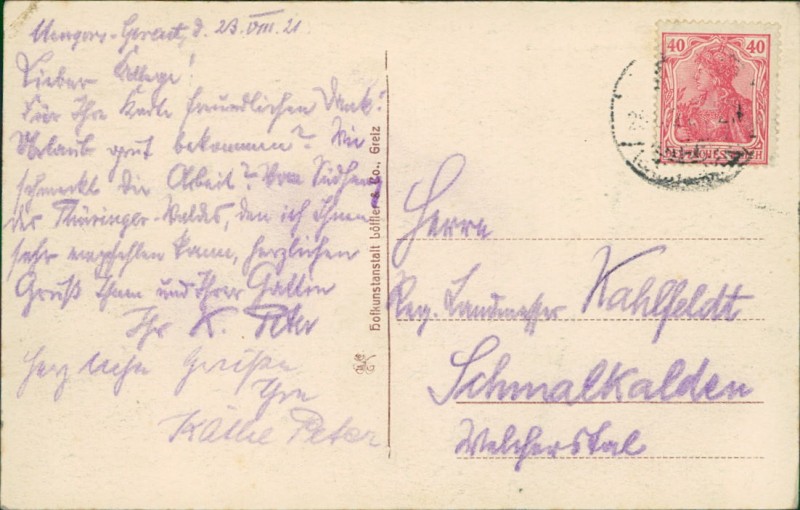 Mengers-Gereut, d. 23.VIII.21
Lieber Kollege!
Für Ihre Karte freundlichen Dank!
Urlaub gut bekommen? Wie
schmeckt die Arbeit? Vom Südhang
des Thüringer-Waldes, den ich Ihnen
sehr empfehlen kann, herzlichen
Gruß Ihnen und Ihrer Gattin
Ihr K. Peter
Herzliche Grüße
Ihre
Käthe Peter
Hofkunstanstalt Löffler & Co., Greiz
40 40
DEUTSCHES REICH
Herrn
Reg. Landmesser Kahlfeldt
Schmalkalden
Welcherstal